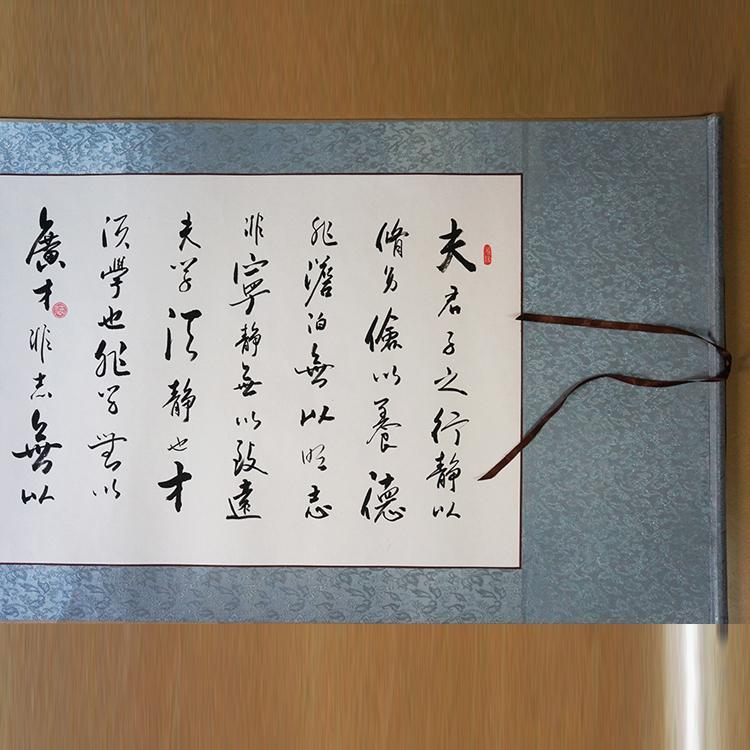 夫君子之行静以
脩身儉以養德
非澹泊無以明志
非寧静無以致遠
夫学須静也才
須學也非学無以
廣才非志無以